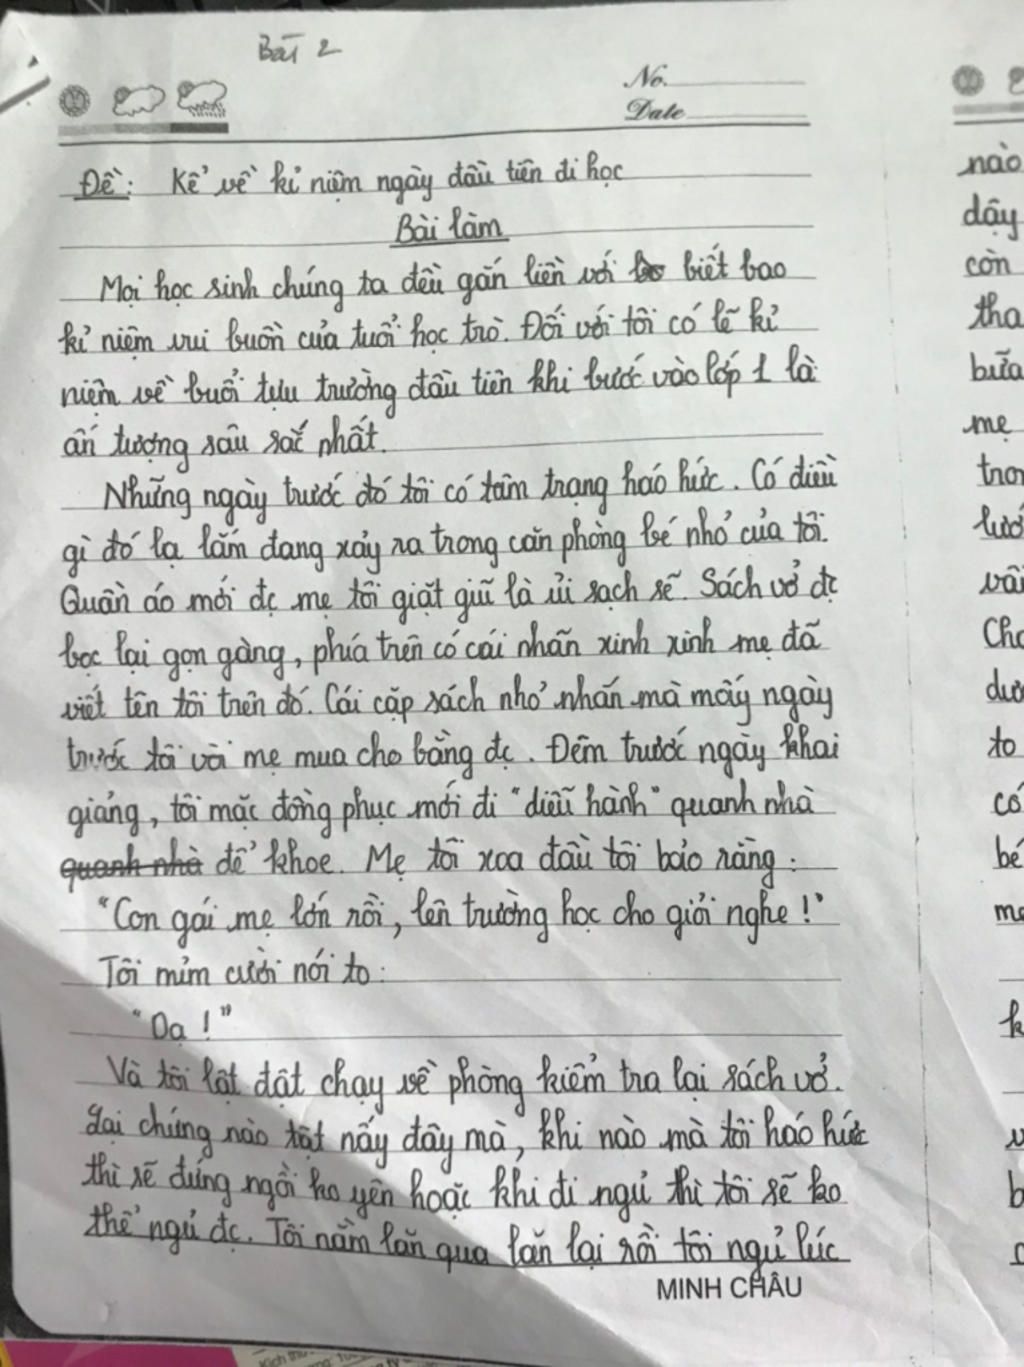 Bài 2
No.
Date
Đề: Kể về kỉ niệm ngày đầu tiên đi học
Bài làm
Mọi học sinh chúng ta đều gắn liền với biết bao
kỉ niệm vui buồn của tuổi học trò. Đối với tôi có lẽ kỉ
niệm về buổi tựu trường đầu tiên khi bước vào lớp 1 là
ấn tượng sâu sắc nhất.
Những ngày trước đó tôi có tâm trạng háo hức. Có điều
gì đó lạ lắm đang xảy ra trong căn phòng bé nhỏ của tôi.
Quần áo mới đc mẹ tôi giặt giũ là ủi sạch sẽ. Sách vở đc
bọc lại gọn gàng, phía trên có cái nhãn xinh xinh mẹ đã
viết tên tôi trên đó. Cái cặp sách nhỏ nhắn mà mấy ngày
trước tôi vòi mẹ mua cho bằng đc. Đêm trước ngày khai
giảng, tôi mặc đồng phục mới đi "diễu hành" quanh nhà
quanh nhà để khoe. Mẹ tôi xoa đầu tôi bảo rằng:
"Con gái mẹ lớn rồi, lên trường học cho giỏi nghe!"
Tôi mỉm cười nói to:
"Dạ!"
Và tôi lật đật chạy về phòng kiểm tra lại sách vở.
Lại chứng nào tật nấy đây mà, khi nào mà tôi háo hức
thì sẽ đứng ngồi ko yên hoặc khi đi ngủ thì tôi sẽ ko
thể ngủ đc. Tôi nằm lăn qua lăn lại rồi tôi ngủ lúc
MINH CHÂU
nào
dậy
còn
tha
bữa
mẹ
to
có
bé